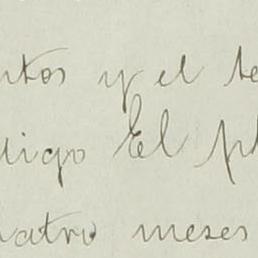 ntos y el te
digo El pl
uatro meses